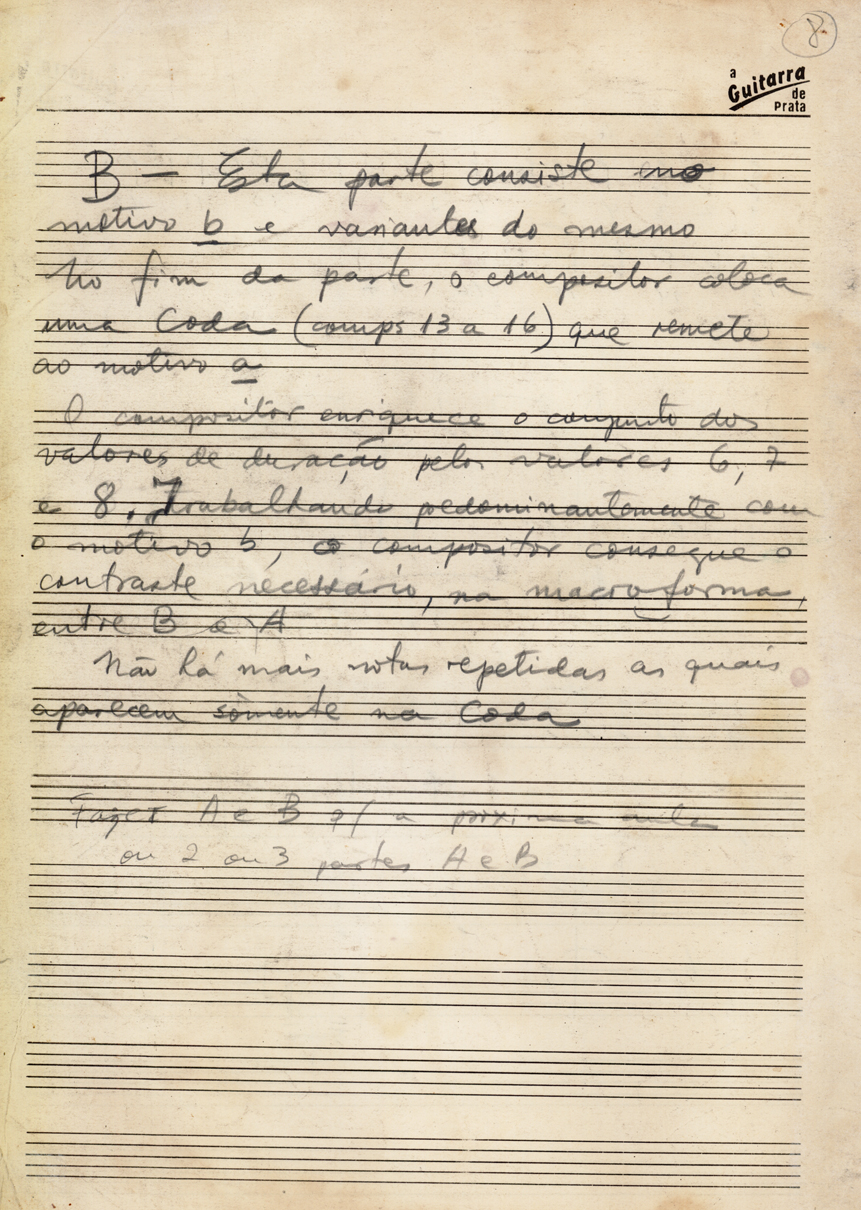 8
a
Guitarra
de
Prata
B — Esta parte consiste no
motivo b e variantes do mesmo
No fim da parte, o compositor coloca
uma Coda (comps 13 a 16) que remete
ao motivo a
O compositor enriquece o conjunto dos
valores de duração pelos valores 6, 7
e 8. Trabalhando predominantemente com
o motivo b, o compositor consegue o
contraste necessário, na macro forma,
entre B e A
Não há mais notas repetidas as quais
aparecem sòmente na Coda
Fazer A e B p/ a próxima aula
ou 2 ou 3 partes A e B